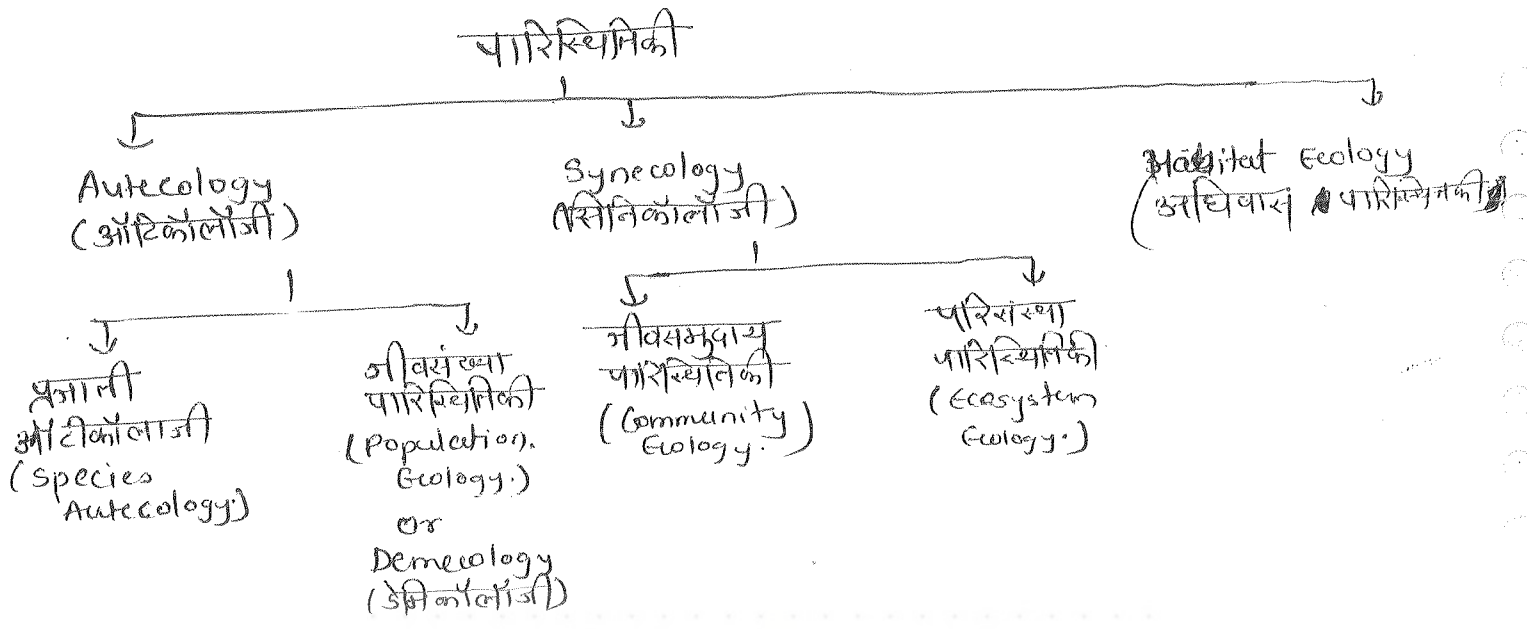 पारिस्थितिकी
Autecology
(ऑटिकॉलॉजी)
Synecology
(सिनिकॉलॉजी)
Habitat Ecology
(अधिवास पारिस्थितिकी)
प्रजाती
ऑटीकॉलाजी
(Species
Autecology.)
जीवसंख्या
पारिस्थितिकी
(Population.
Ecology.)
Or
Demecology
(डेमिकॉलॉजी)
जीवसमुदाय
पारिस्थितिकी
(Community
Ecology.)
परिसंस्था
पारिस्थितिकी
(Ecosystem
Ecology.)